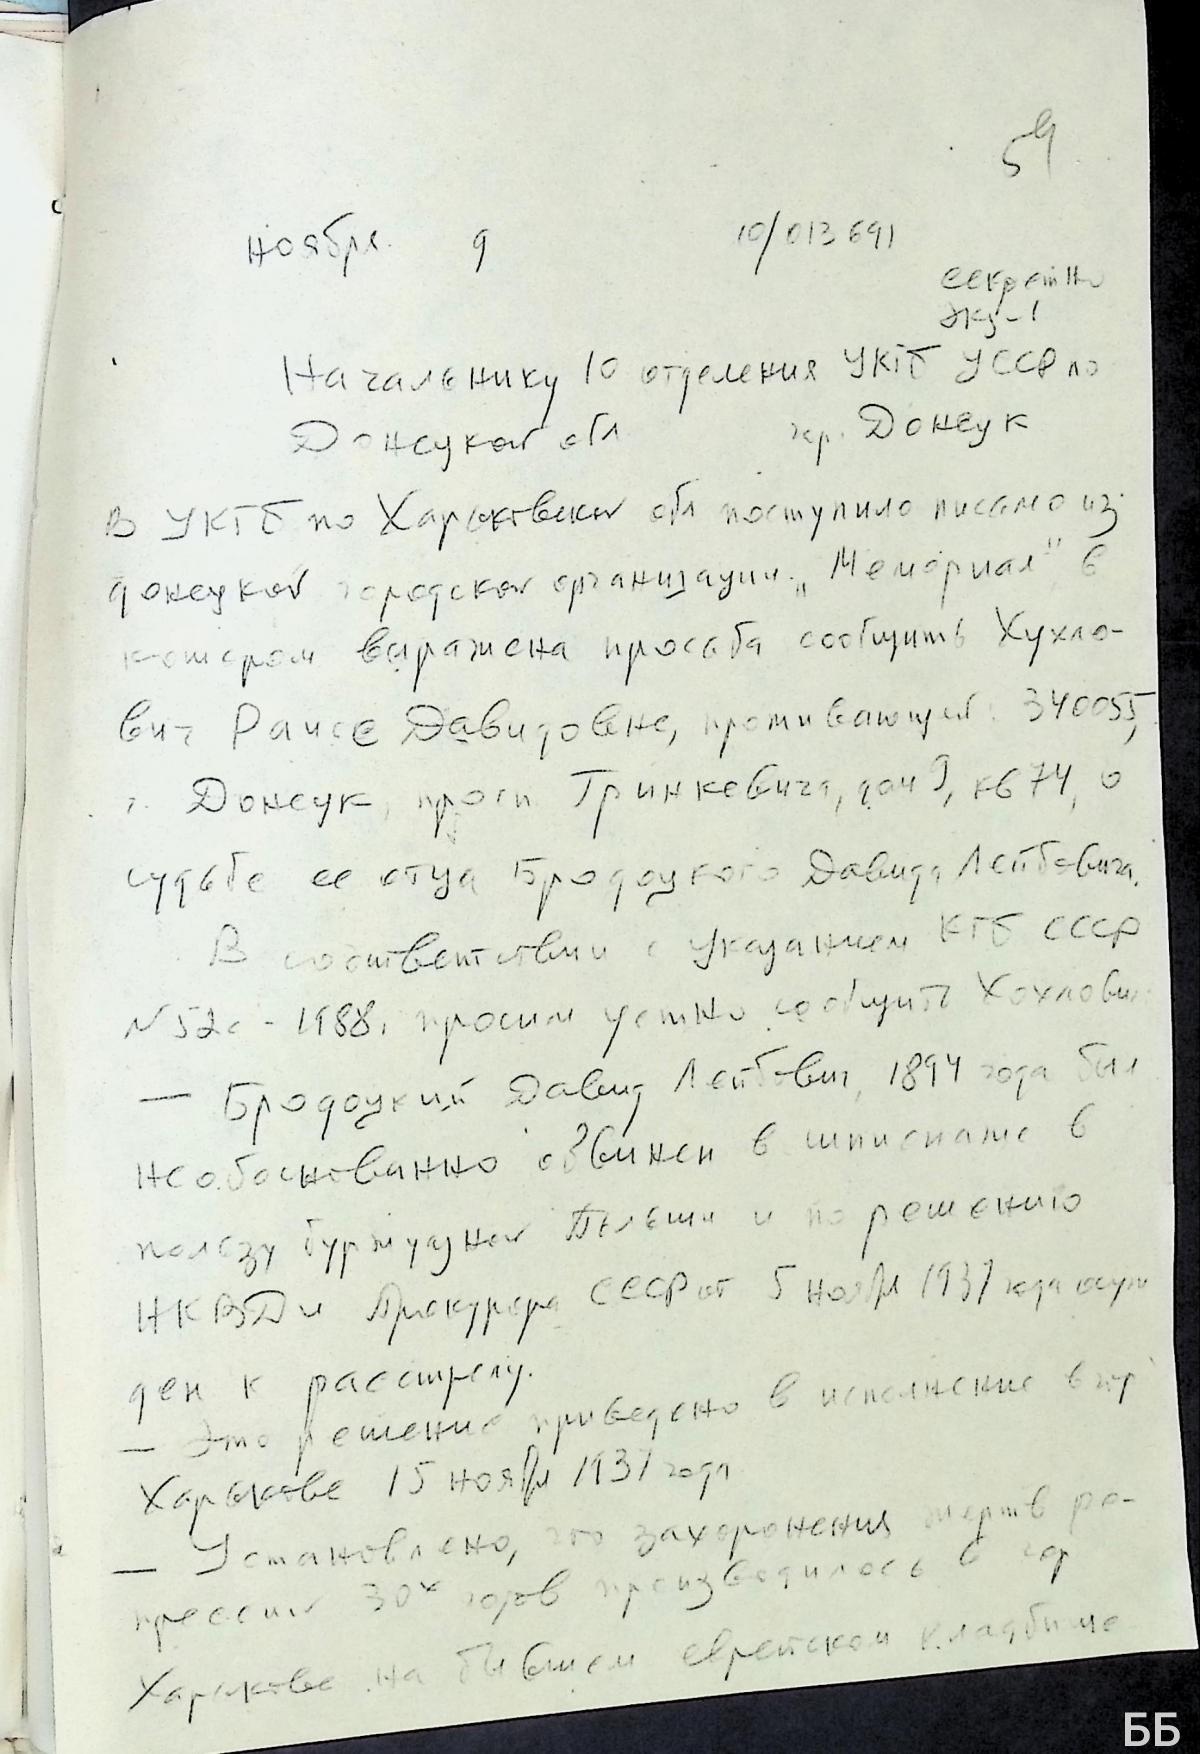 59
ноября 9 10/013691
секретно
экз-1
Начальнику 10 отделения УКГБ УССР по
Донецкой обл гор. Донецк
В УКГБ по Харьковской обл поступило письмо из
донецкой городской организации „Мемориал" в
котором выражена просьба сообщить Хухло-
вич Раисе Давидовне, проживающей: 340055,
г. Донецк, просп. Гринкевича, дом 9, кв 74, о
судьбе ее отца Бродоцкого Давида Лейбовича.
В соответствии с указанием КГБ СССР
N 52с - 1988г просим устно сообщить Хохлович
— Бродоцкий Давид Лейбович, 1894 года был
необоснованно обвинен в шпионаже в
пользу буржуазной Польши и по решению
НКВД и Прокурора СССР от 5 ноября 1937 года осуж
ден к расстрелу.
— Это решение приведено в исполнение в гор
Харькове 15 ноября 1937 года.
— Установлено, что захоронения жертв ре-
прессий 30х годов производилось в гор
Харькове на бывшем еврейском кладбище
ББ